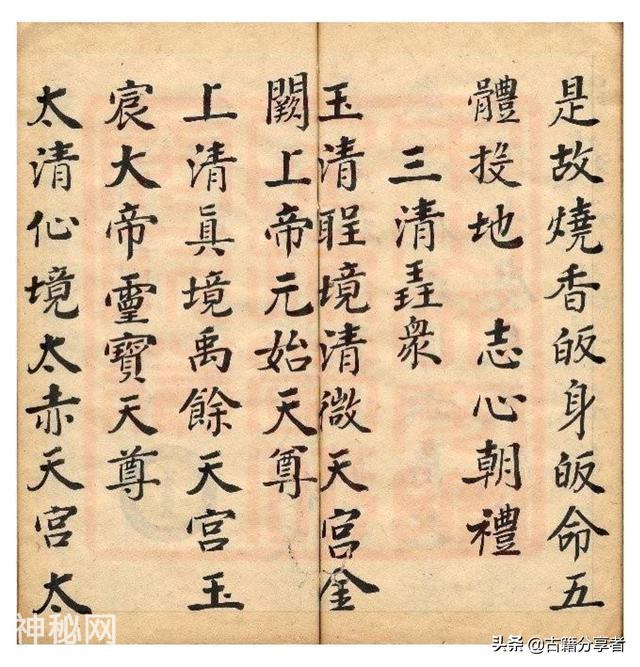 是故燒香皈身皈命五
體投地　志心朝禮
三清聖衆
玉清聖境清微天宮金
闕上帝元始天尊
上清眞境禹餘天宮玉
宸大帝靈寶天尊
太清仙境太赤天宮太
神秘网
头条 @古籍分享者